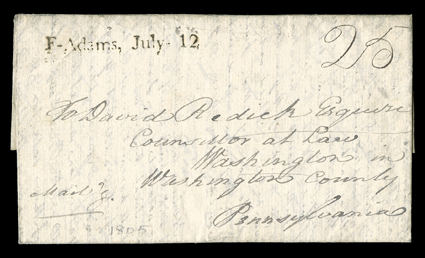 F-Adams, July 12
25
To David Redick Esquire
Counsellor at Law
Washington in
Washington County
Pennsylvania
Mail
1805